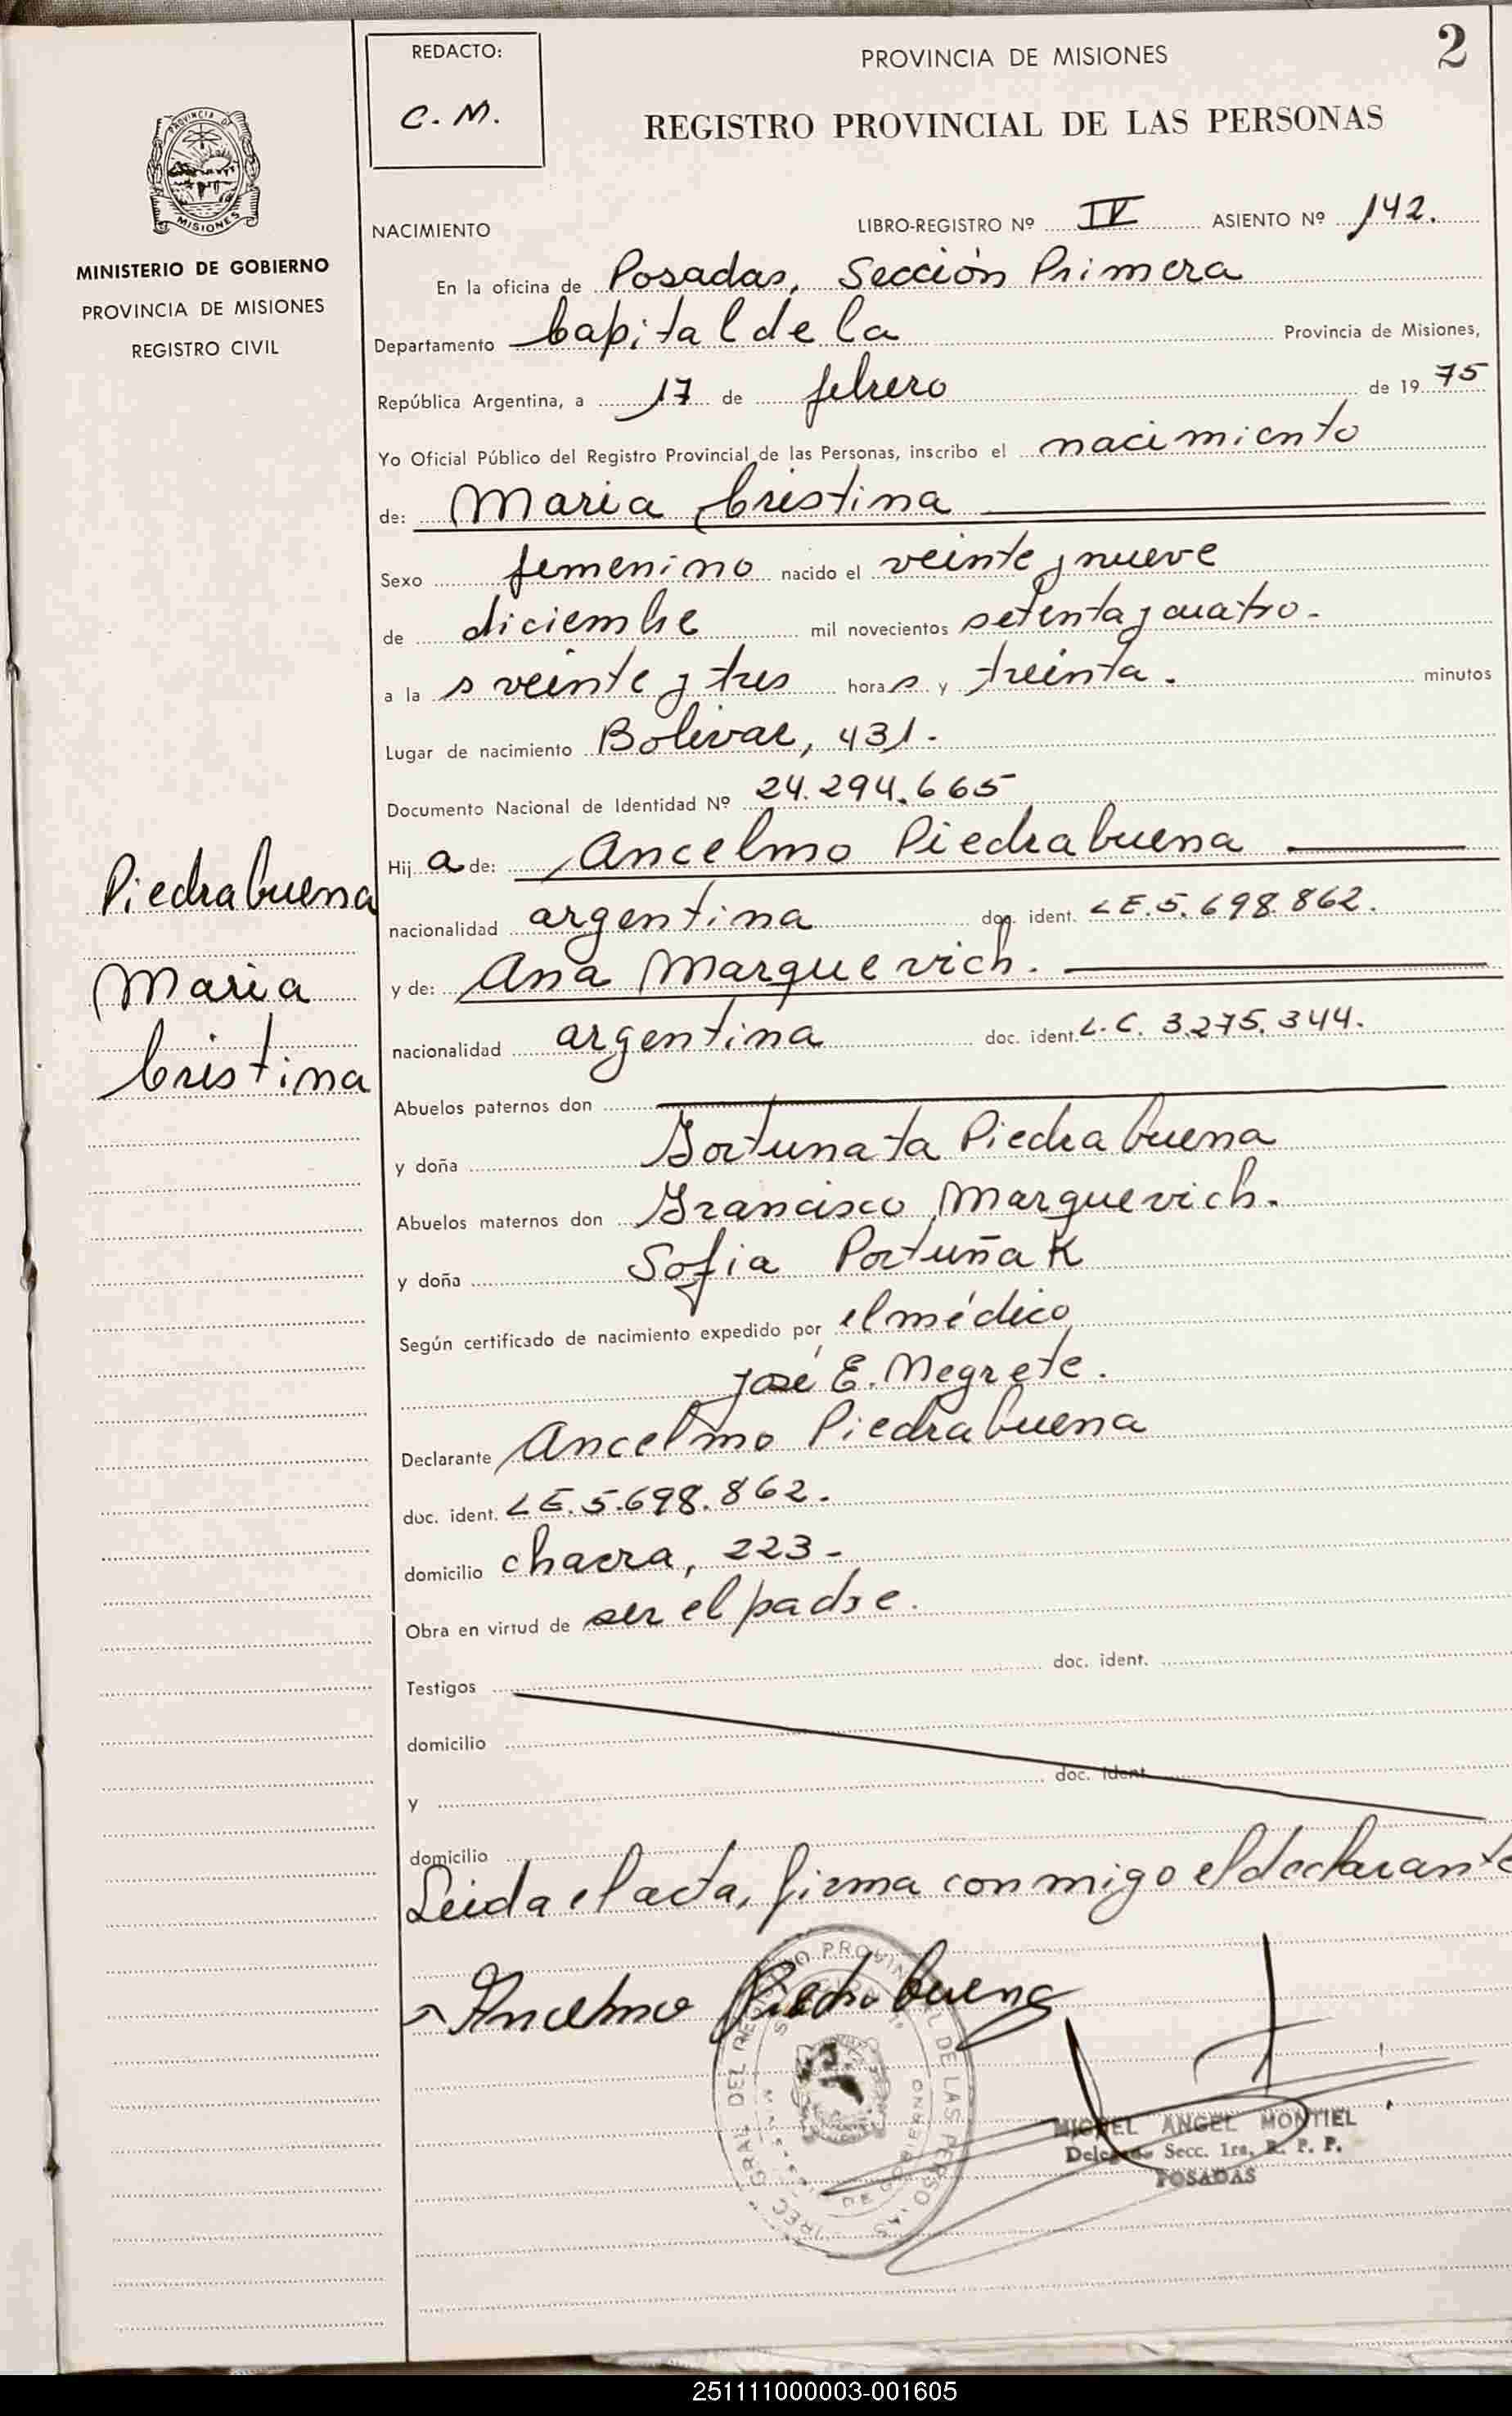 REDACTO:
C. M.
PROVINCIA DE MISIONES
2
REGISTRO PROVINCIAL DE LAS PERSONAS
PROVINCIA DE
MISIONES
MINISTERIO DE GOBIERNO
PROVINCIA DE MISIONES
REGISTRO CIVIL
NACIMIENTO
LIBRO-REGISTRO Nº IV ASIENTO Nº 142.
En la oficina de Posadas, Sección Primera
Departamento Capital de la Provincia de Misiones,
República Argentina, a 17 de febrero de 1975
Yo Oficial Público del Registro Provincial de las Personas, inscribo el nacimiento
de: Maria Cristina
Sexo femenino nacido el veinte y nueve
de diciembre mil novecientos setenta y cuatro.
a la s veinte y tres horas y treinta. minutos
Lugar de nacimiento Bolivar, 431.
Documento Nacional de Identidad Nº 24.294.665
Hij a de: Ancelmo Piedrabuena
nacionalidad argentina doc. ident. LE. 5.698.862.
y de: Ana Marquevich.
nacionalidad argentina doc. ident. L.C. 3.275.344.
Piedrabuena
Maria
Cristina
Abuelos paternos don
y doña Fortunata Piedrabuena
Abuelos maternos don Francisco Marquevich.
y doña Sofia Portuñak
Según certificado de nacimiento expedido por el médico
José E. Negrete.
Declarante Ancelmo Piedrabuena
doc. ident. LE. 5.698.862.
domicilio chacra, 223-
Obra en virtud de ser el padre.
Testigos doc. ident.
domicilio
y doc. ident.
domicilio
Leida el acta, firma conmigo el declarante
Ancelmo Piedrabuena
MIGUEL ANGEL MONTIEL
Delegado Secc. 1ra. R. P. P.
POSADAS
251111000003-001605